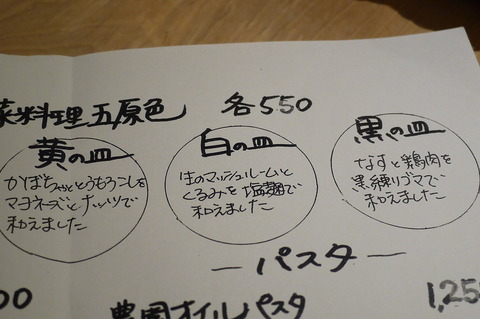 菜料理五原色 各550
黄の皿
かぼちゃととうもろこしを
マヨネーズとナッツで
和えました
白の皿
生のマッシュルームと
くるみを塩麹で
和えました
黒の皿
なすと鶏肉を
黒練りゴマで
和えました
ーパスター
00
農園オイルパスタ
1,25